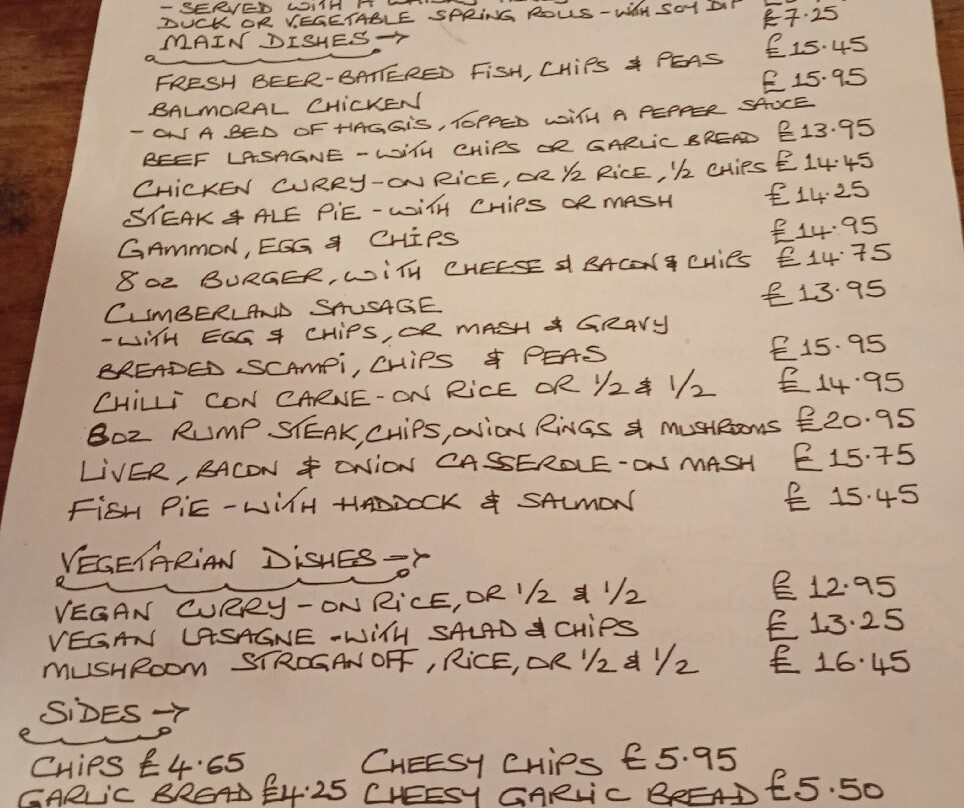 - SERVED WITH A
DUCK OR VEGETABLE SPRING ROLLS - WITH SOY DIP £7.25
MAIN DISHES →
FRESH BEER-BATTERED FISH, CHIPS & PEAS £15.45
BALMORAL CHICKEN £15.95
- ON A BED OF HAGGIS, TOPPED WITH A PEPPER SAUCE
BEEF LASAGNE - WITH CHIPS OR GARLIC BREAD £13.95
CHICKEN CURRY - ON RICE, OR 1/2 RICE, 1/2 CHIPS £14.45
STEAK & ALE PIE - WITH CHIPS OR MASH £14.25
GAMMON, EGG & CHIPS £14.95
8OZ BURGER, WITH CHEESE & BACON & CHIPS £14.75
CUMBERLAND SAUSAGE £13.95
- WITH EGG & CHIPS, OR MASH & GRAVY
BREADED SCAMPI, CHIPS & PEAS £15.95
CHILLI CON CARNE - ON RICE OR 1/2 & 1/2 £14.95
8OZ RUMP STEAK, CHIPS, ONION RINGS & MUSHROOMS £20.95
LIVER, BACON & ONION CASSEROLE - ON MASH £15.75
FISH PIE - WITH HADDOCK & SALMON £15.45
VEGETARIAN DISHES →
VEGAN CURRY - ON RICE, OR 1/2 & 1/2 £12.95
VEGAN LASAGNE - WITH SALAD & CHIPS £13.25
MUSHROOM STROGANOFF, RICE, OR 1/2 & 1/2 £16.45
SIDES →
CHIPS £4.65 CHEESY CHIPS £5.95
GARLIC BREAD £4.25 CHEESY GARLIC BREAD £5.50